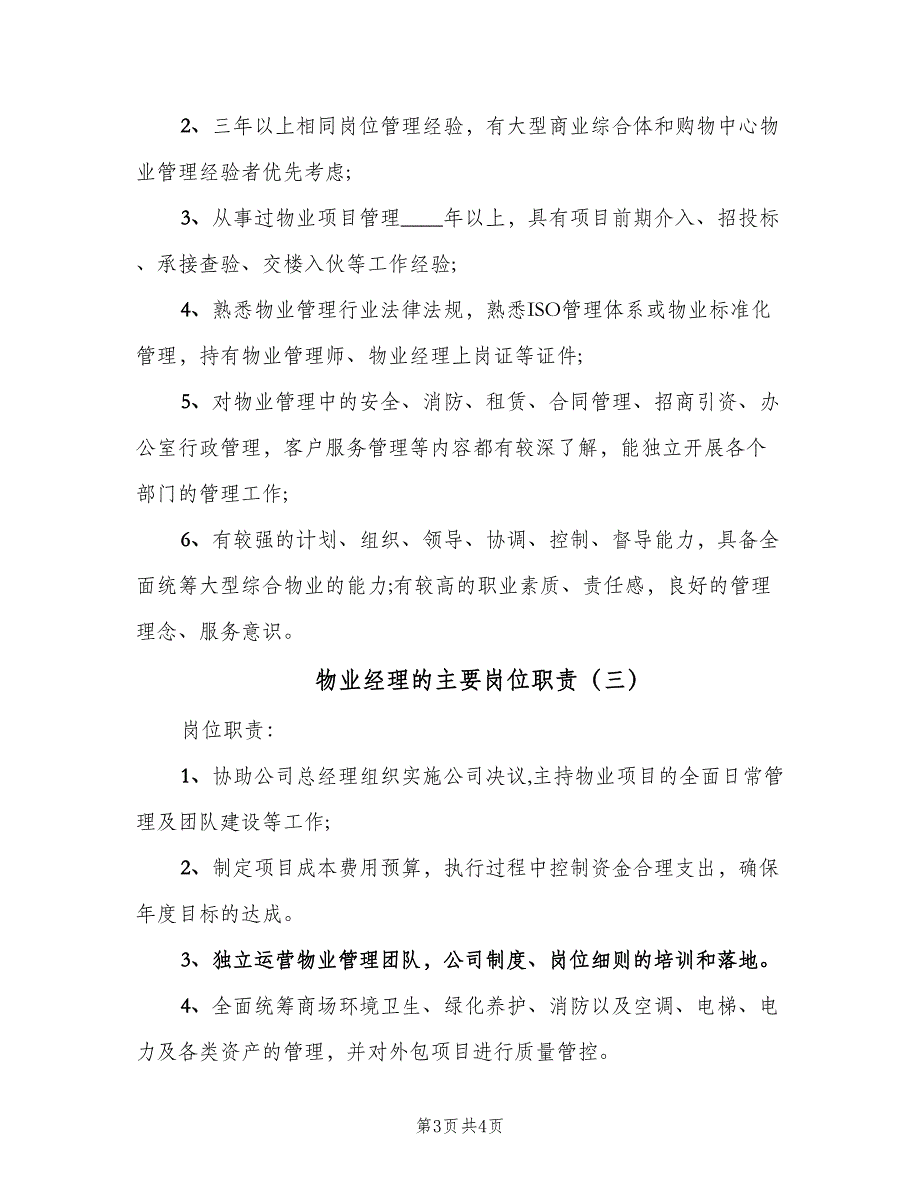 2、三年以上相同岗位管理经验，有大型商业综合体和购物中心物
业管理经验者优先考虑;
3、从事过物业项目管理____年以上，具有项目前期介入、招投标
、承接查验、交楼入伙等工作经验;
4、熟悉物业管理行业法律法规，熟悉ISO管理体系或物业标准化
管理，持有物业管理师、物业经理上岗证等证件;
5、对物业管理中的安全、消防、租赁、合同管理、招商引资、办
公室行政管理，客户服务管理等内容都有较深了解，能独立开展各个
部门的管理工作;
6、有较强的计划、组织、领导、协调、控制、督导能力，具备全
面统筹大型综合物业的能力;有较高的职业素质、责任感，良好的管理
理念、服务意识。
物业经理的主要岗位职责（三）
岗位职责：
1、协助公司总经理组织实施公司决议,主持物业项目的全面日常管
理及团队建设等工作;
2、制定项目成本费用预算，执行过程中控制资金合理支出，确保
年度目标的达成。
3、独立运营物业管理团队，公司制度、岗位细则的培训和落地。
4、全面统筹商场环境卫生、绿化养护、消防以及空调、电梯、电
力及各类资产的管理，并对外包项目进行质量管控。
第3页共4页